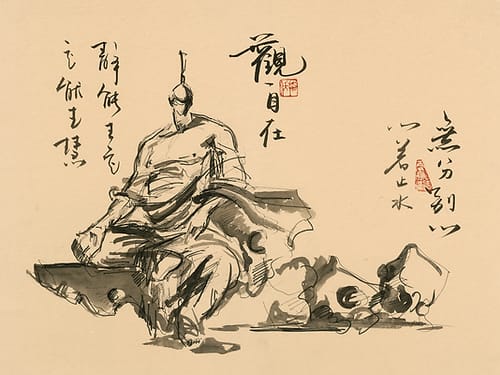 無分別心
心若止水
觀自在
靜能生定
定能生慧